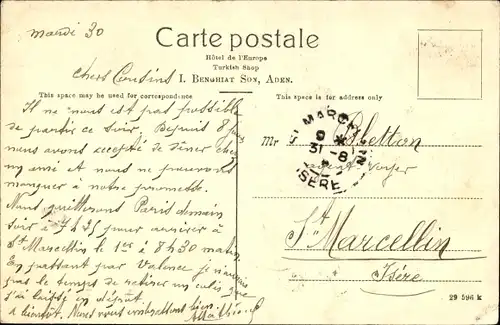 mardi 30
Carte postale
Hôtel de l'Europe
Turkish Shop
I. Benghiat Son, Aden.
chers Cousins
This space may be used for correspondence
This space is for address only
Il ne nous est pas possible
de partir ce soir. Depuis 8 jours
nous avons accepté de dîner chez
my ami et nous ne pouvons
manquer à notre promesse.
Nous quitterons Paris demain
soir à 7h35 pour arriver à
St Marcellin le 1er à 8h30 matin.
En passant par Valence je n'aurai
pas le temps de retirer my colis que
j'ai laissé en dépôt.
à bientôt. Nous vous embrassons bien
St MARCELLIN
9
31-8
ISÈRE
Mr
agent voyer
St Marcellin
Isère
29 596 k